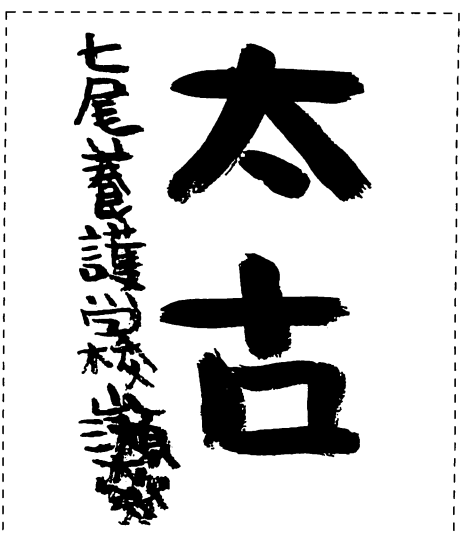 太古
七尾養護学校 讃